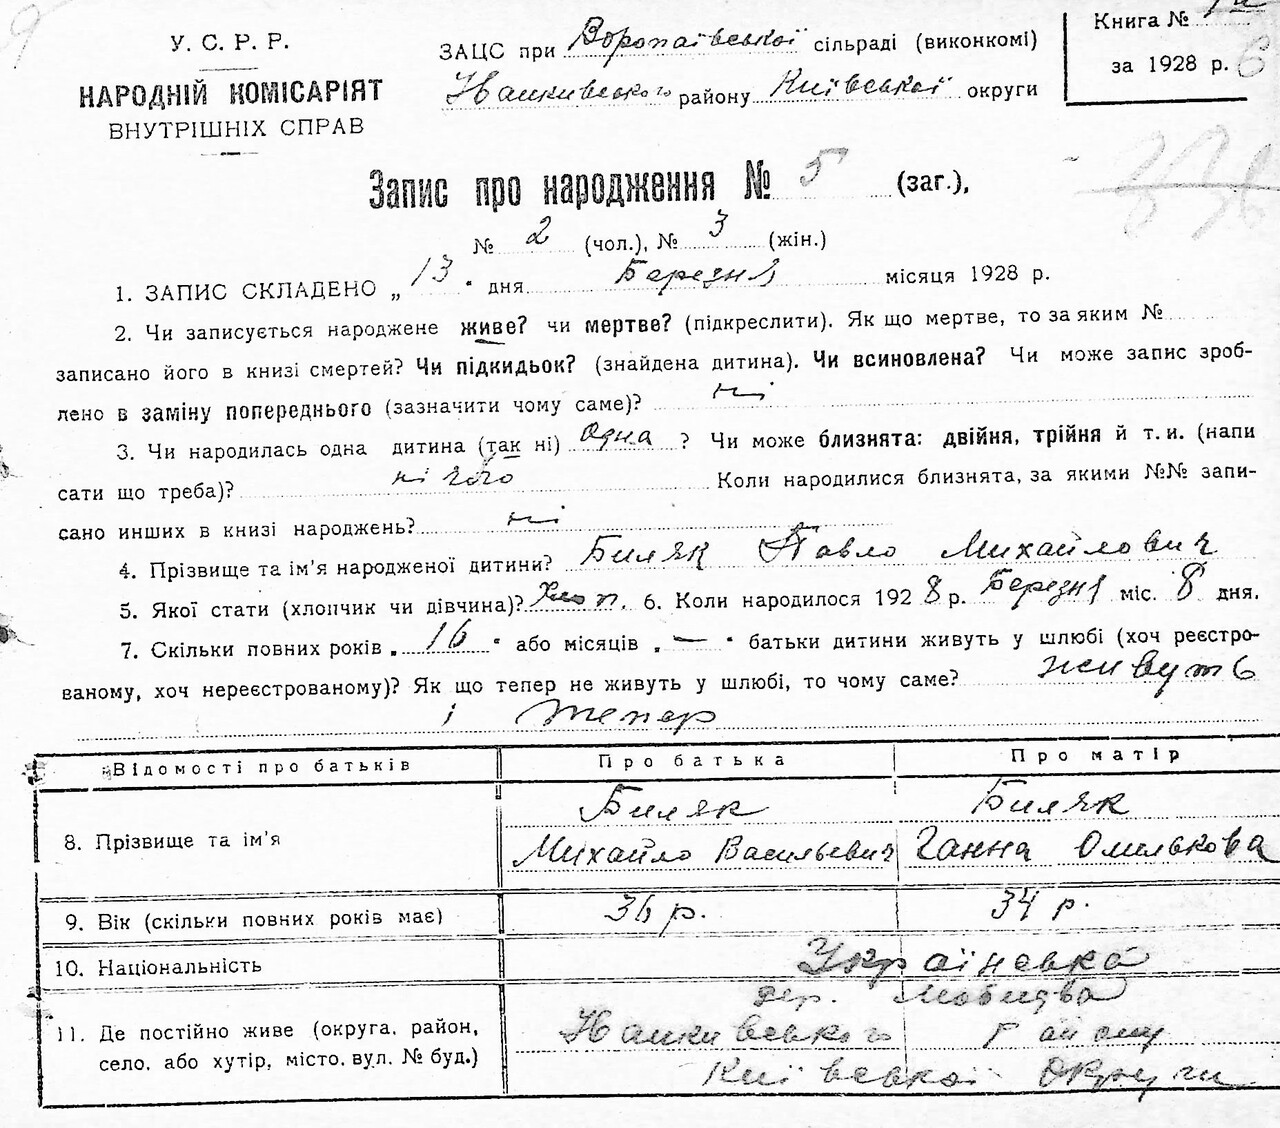 У. С. Р. Р.
НАРОДНІЙ КОМІСАРІЯТ
ВНУТРІШНІХ СПРАВ
ЗАЦС при Воропаївської сільраді (виконкомі)
району Київської округи
Книга №
за 1928 р.
Запис про народження № 5 (заг.),
№ 2 (чол.), № 3 (жін.)
1. ЗАПИС СКЛАДЕНО „ 13 " дня Березня місяця 1928 р.
2. Чи записується народжене живе? чи мертве? (підкреслити). Як що мертве, то за яким №
записано його в книзі смертей? Чи підкидьок? (знайдена дитина). Чи всиновлена? Чи може запис зроб-
лено в заміну попереднього (зазначити чому саме)? ні
3. Чи народилась одна дитина (так ні) одна ? Чи може близнята: двійня, трійня й т. и. (напи
сати що треба)? нічого Коли народилися близнята, за якими №№ запи-
сано инших в книзі народжень? ні
4. Прізвище та ім'я народженої дитини? Биляк Павло Михайлович
5. Якої стати (хлопчик чи дівчина)? Хлоп. 6. Коли народилося 1928 р. Березня міс. 8 дня.
7. Скільки повних років „ 16 " або місяців „ — " батьки дитини живуть у шлюбі (хоч реєстро-
ваному, хоч нереєстрованому)? Як що тепер не живуть у шлюбі, то чому саме? живуть
і тепер
Відомості про батьків Про батька Про матір
Биляк Биляк
8. Прізвище та ім'я Михайло Васильевич Ганна Омелькова
9. Вік (скільки повних років має) 36 р. 34 р.
10. Національність Українська
дер.
11. Де постійно живе (округа, район, району
село, або хутір, місто, вул. № буд.) Київської округи